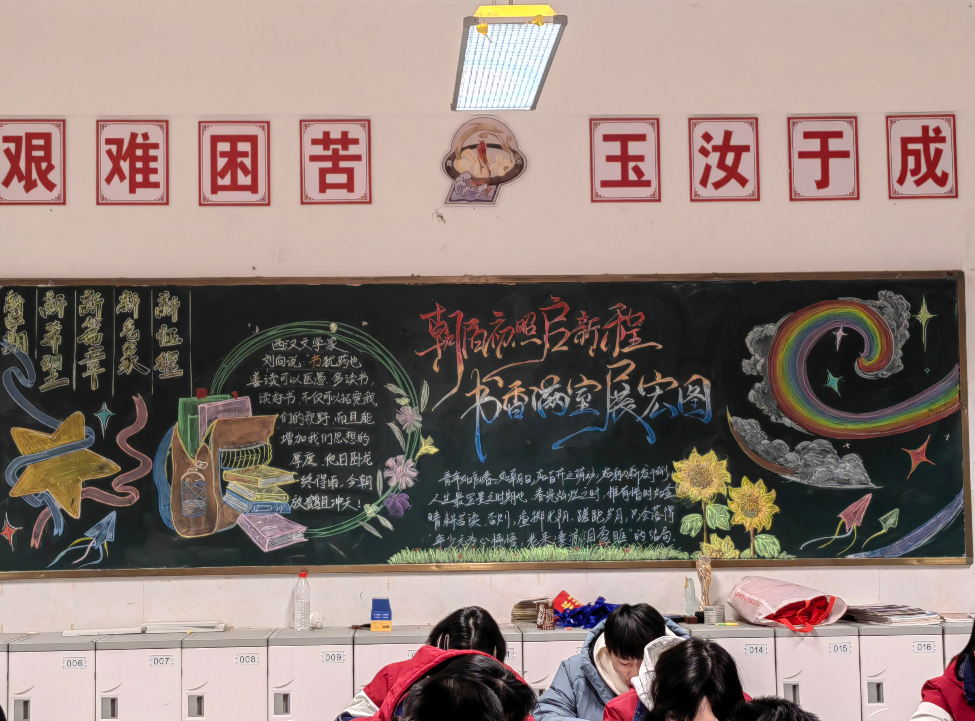 艰难困苦
玉汝于成
新征程
新未来
新篇章
新希望
西汉文学家
刘向说:书犹药也
善读可以医愚,多读书,
读好书,不仅可以拓宽我
们的视野,而且能
增加我们思想的
厚度,他日卧龙
终得雨,今朝
放鹤且冲天!
朝阳初照启新程
书香满室展宏图
青年如初春,如朝日,如百卉之萌动,如利刃新发于硎,
人生最宝贵之时期也。春光灿烂之时,惟有惜时如金
苦读,否则,虚掷光阴,蹉跎岁月,只会落得
的结局
006
007
008
009
014
015
016